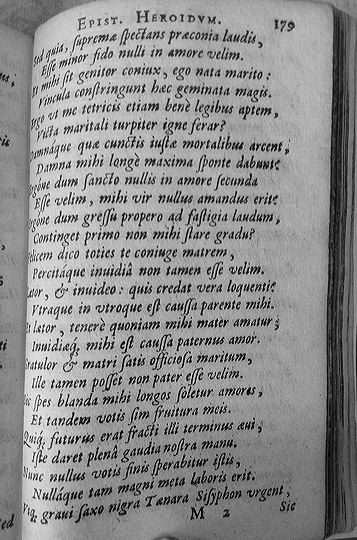 EPIST. HEROIDVM. 179
Sed quia, supremæ spectans præconia laudis,
Esse minor fido nulli in amore velim.
Et mihi sit genitor coniux, ego nata marito:
Vincula constringunt hæc geminata magis.
Ergo vt me tetricis etiam benè legibus aptem,
Victa maritali turpiter igne ferar?
Damnáque quæ cunctis iustæ mortalibus arcent,
Damna mihi longè maxima sponte dabunt?
Ergóne dum sancto nullis in amore secunda
Esse velim, mihi vir nullus amandus erit?
Ergóne dum gressu propero ad fastigia laudum,
Continget primo non mihi stare gradu?
Felicem dico toties te coniuge matrem,
Percitáque inuidiâ non tamen esse velim.
Lætor, & inuideo: quis credat vera loquenti?
Vtraque in vtroque est caussa parente mihi.
Et lætor, tenerè quoniam mihi mater amatur;
Inuidiæq́; mihi est caussa paternus amor.
Gratulor & matri satis officiosa maritum,
Ille tamen posset non pater esse velim.
Sic spes blanda mihi longos soletur amores,
Et tandem votis sim fruitura meis.
Quiq́; futurus erat fracti illi terminus æui,
Iste daret plenâ gaudia nostra manu.
Nunc nullus votis finis sperabitur istis,
Nulláque tam magni meta laboris erit.
Vtq́; graui saxo nigra Tænara Sisyphon vrgent,
M 2 Sic